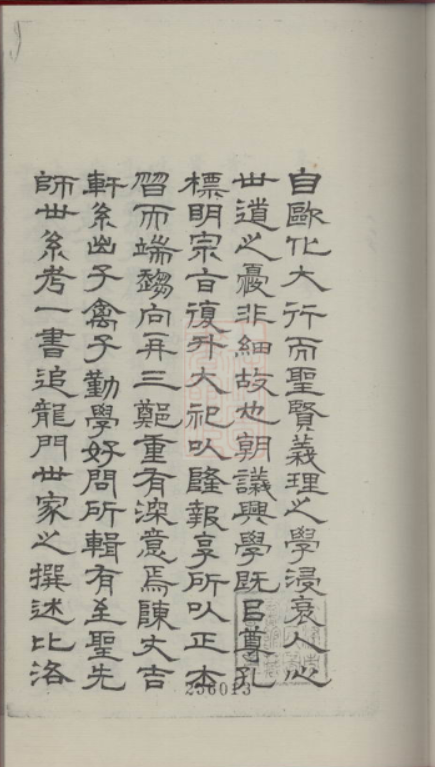 自歐化大行而聖賢義理之學浸衰人心
世道之憂非細故也朝議興學既㠯尊孔
標明宗旨復升大祀以隆報享所以正本
習而端趨向再三鄭重有深意焉陳丈吉
軒系出子禽子勤學好問所輯有至聖先
師世系考一書追龍門世家之撰述比洛